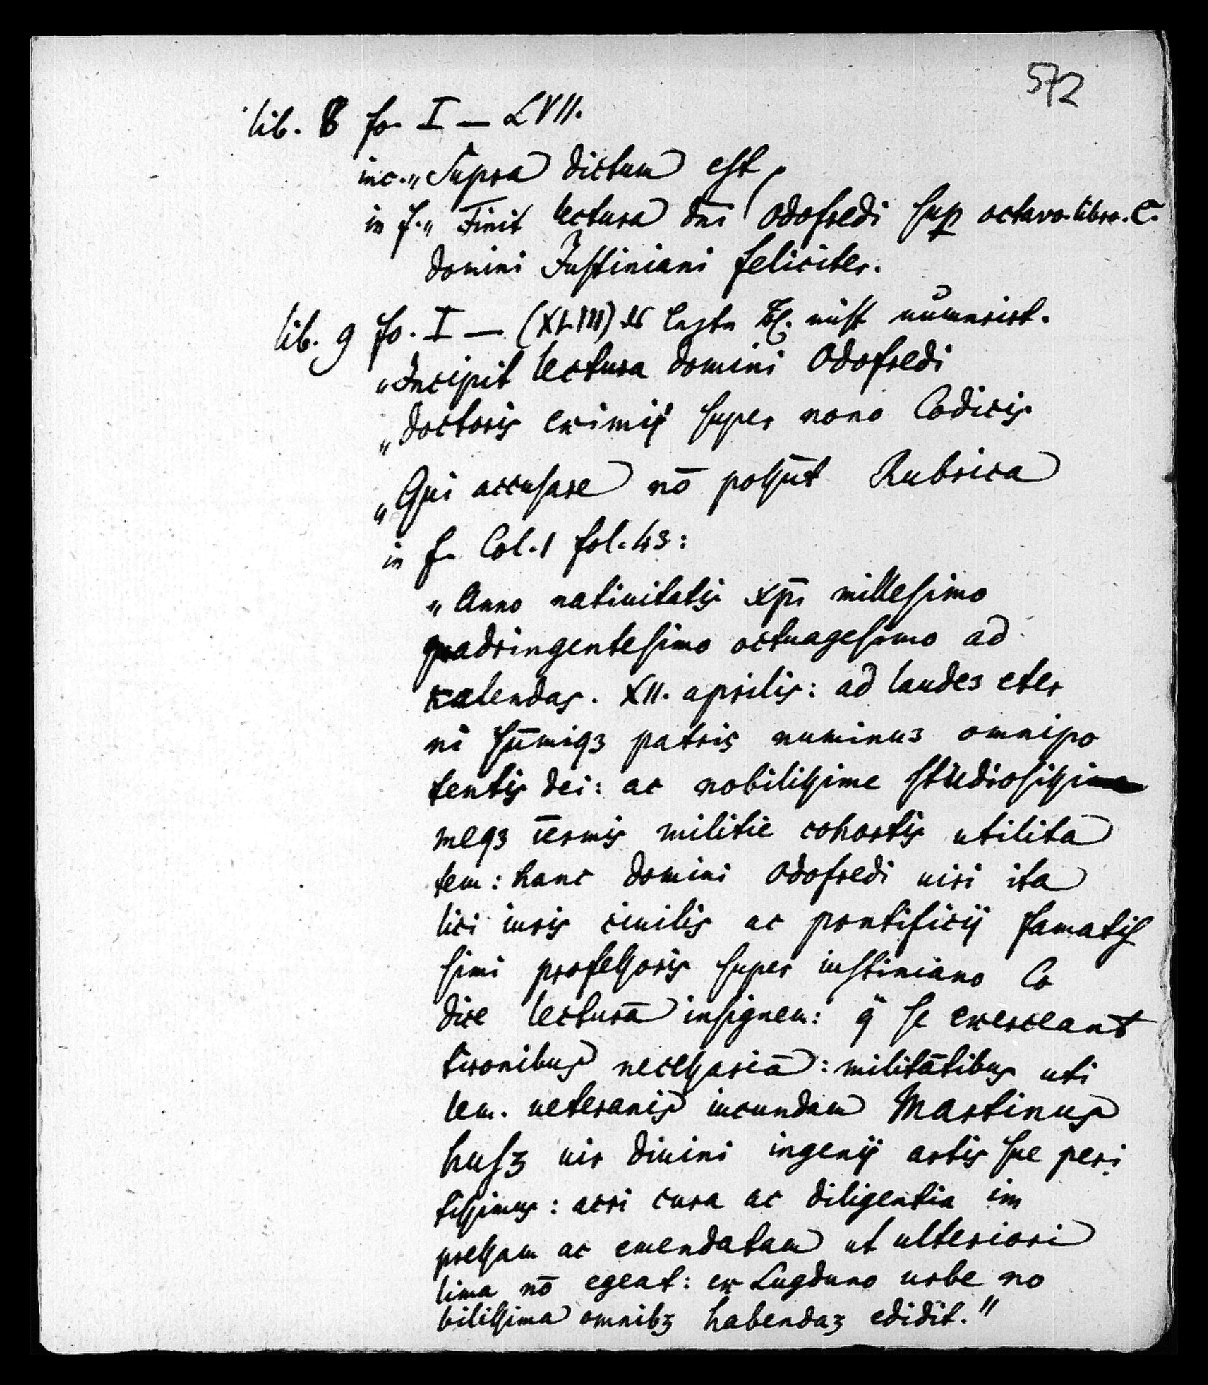 572
lib. 8 fo. I — LVII.
inc. „Supra dictum est
in f. „Finit lectura dn̄i Odofredi sup octavo libro. C.
domini Justiniani feliciter.
lib. 9 fo. I — (XLIII) der letzte ist nicht numerirt.
„Incipit lectura domini Odofredi
„doctoris eximij super nono Codicis
„Qui accusare nō possūt Rubrica
in f. Col. 1 fol. 43:
„Anno natiuitatis xp̄i millesimo
quadringentesimo octuagesimo ad
kalendas. XII. aprilis: ad laudes eter
ni sūmiqz patris numinus omnipo
tentis dei: ac nobilissime studiosissi
meqz iermis militie cohortis utilita
tem: hanc domini Odofredi uiri ita
lici iuris ciuilis ac pontificij famatis
simi professoris super iustiniano Co
dice lecturā insignem: q̄ se exerceant
tironibus necessariā: militātibus uti
lem. ueteranis iucundam Martinus
husz uir diuini ingenij artis sue peri
tissimus: acri cura ac diligentia im
pressam ac emendatam ut ulteriori
lima nō egeat: ex Lugduno urbe no
bilissima omnibz habendaz edidit."